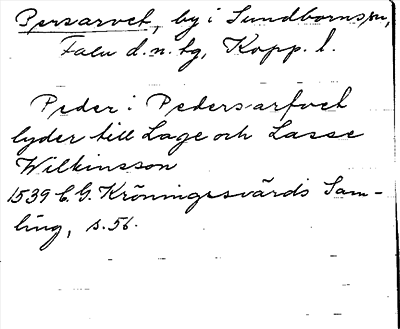 Persarvet, by i Sundborns sn,
Falu d.n. tg, Kopp. l.
Peder i Pedersarfvet
lyder till Lage och Lasse
Wilkinsson
1539 C.G. Kröningssvärds Sam-
ling, s. 56.